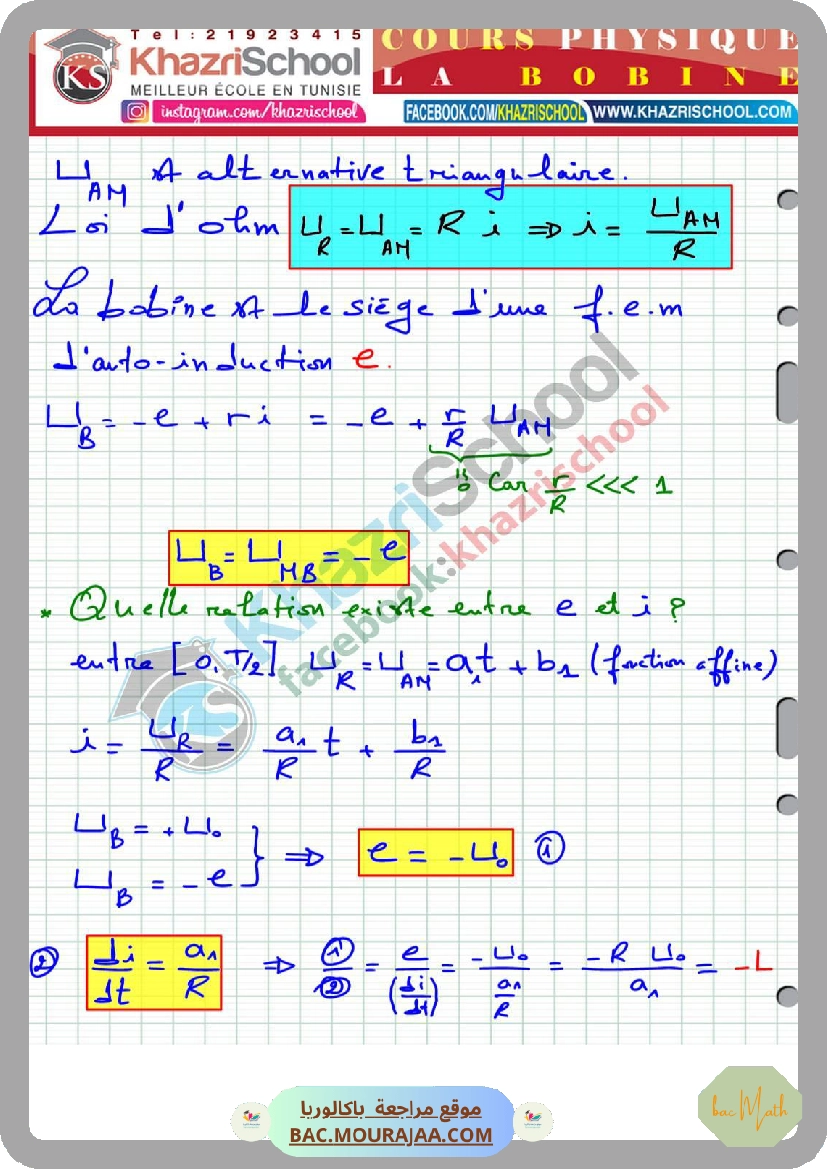 Tel:21923415
KhazriSchool
MEILLEUR ÉCOLE EN TUNISIE
KS
instagram.com/khazrischool
COURS PHYSIQUE
LA BOBINE
FACEBOOK.COM/KHAZRISCHOOL WWW.KHAZRISCHOOL.COM
U_AM st alternative triangulaire.
Loi d'ohm U_R = U_AM = R i ⇒ i = U_AM / R
La bobine st le siège d'une f.e.m
d'auto-induction e.
U_B = -e + r i = -e + r/R U_AM
≈ 0 Car r/R <<< 1
U_B = U_MB = -e
* Quelle relation existe entre e et i ?
entre [0, T/2] U_R = U_AM = a₁t + b₁ (fonction affine)
i = U_R / R = a₁/R t + b₁/R
U_B = + U₀
U_B = - e
} ⇒ e = -U₀ ①
② di/dt = a₁/R ⇒ ①/② = e/(di/dt) = -U₀/(a₁/R) = -R U₀/a₁ = -L
KhazriSchool
facebook:khazrischool
موقع مراجعة باكالوريا
BAC.MOURAJAA.COM
bac Math